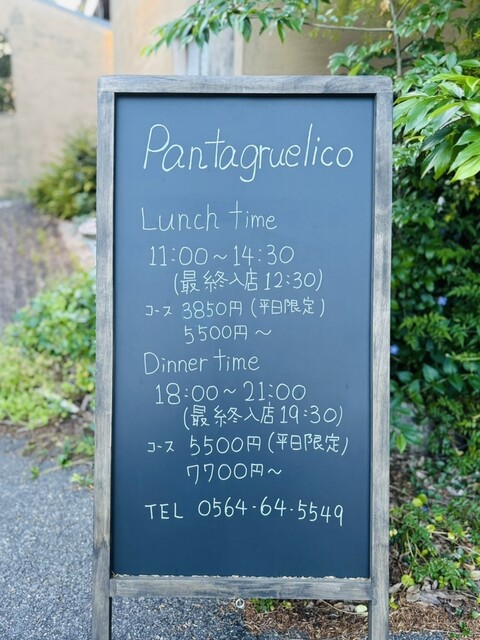 Pantagruelico
Lunch time
11:00〜14:30
(最終入店12:30)
コース 3850円(平日限定)
5500円〜
Dinner time
18:00〜21:00
(最終入店19:30)
コース 5500円(平日限定)
7700円〜
TEL 0564-64-5549